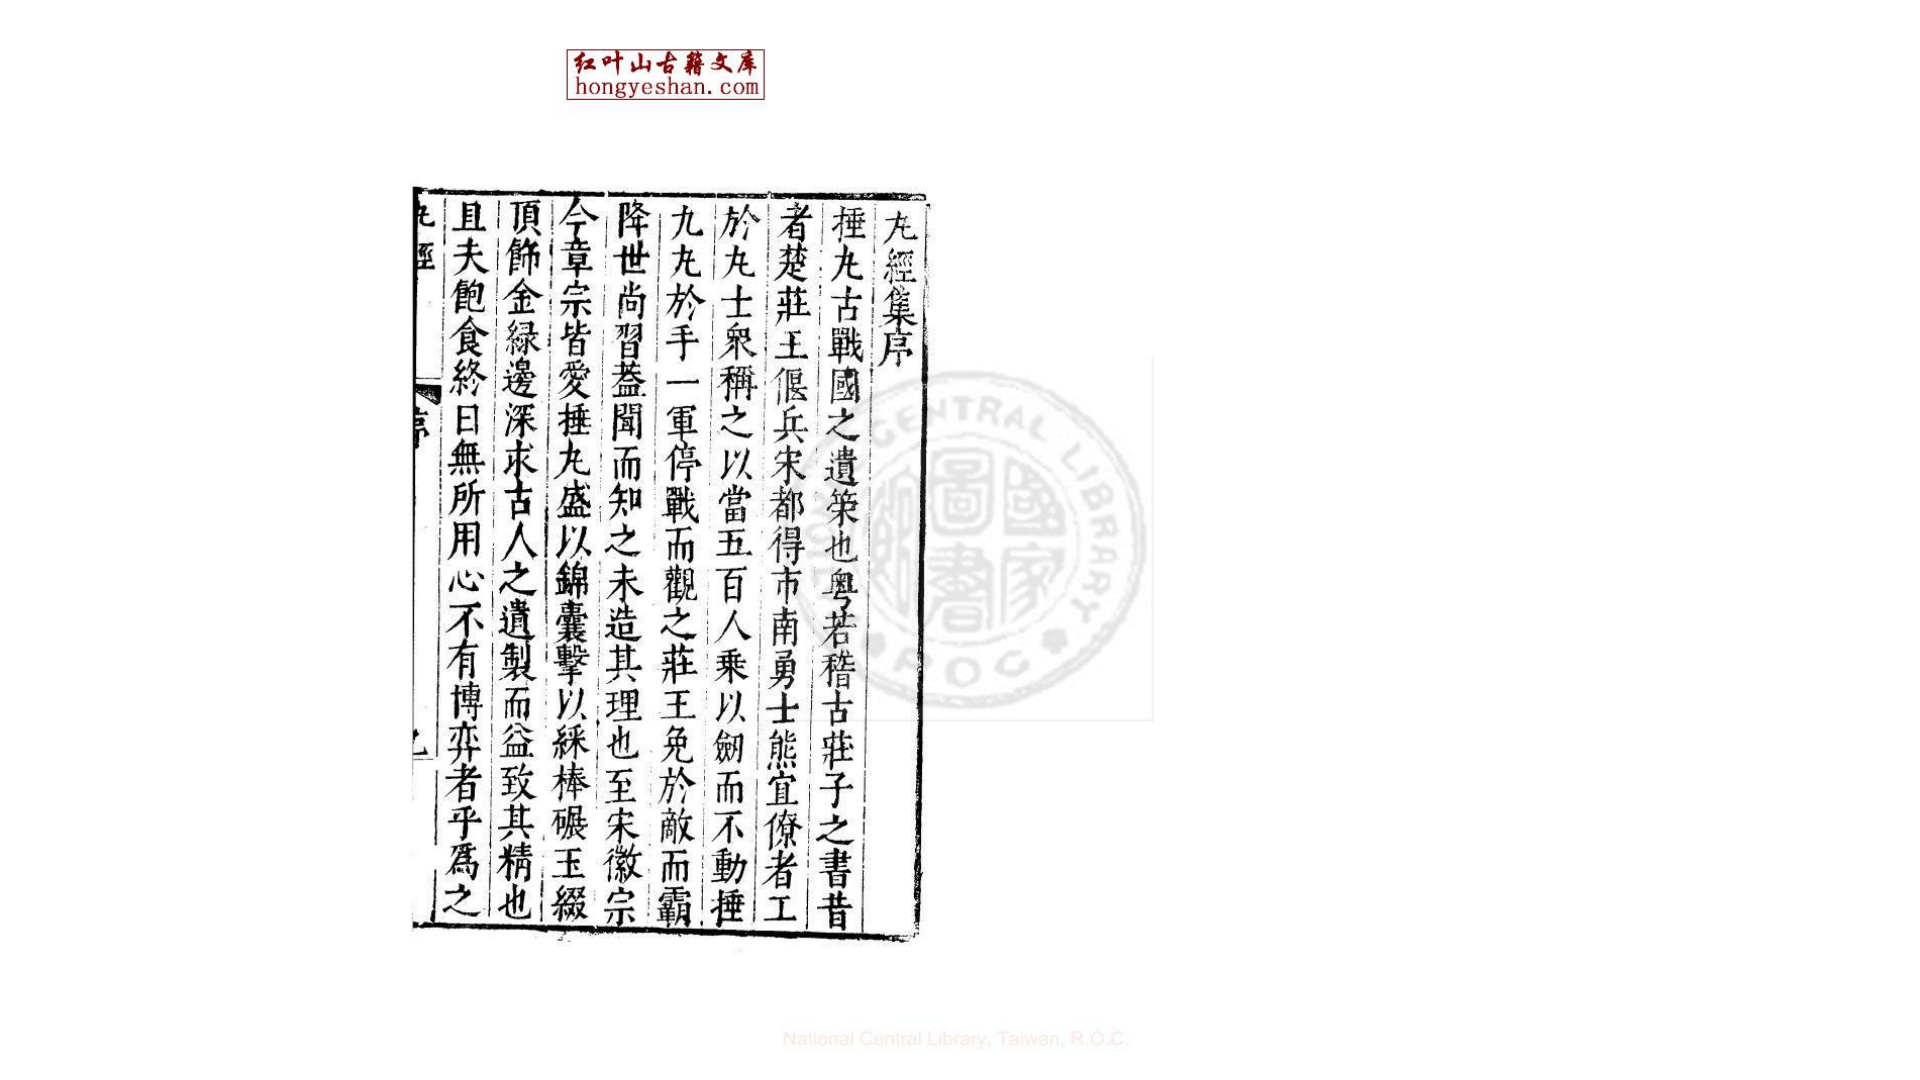 红叶山古籍文库
hongyeshan.com
丸經集序
捶丸古戰國之遺策也粤若稽古莊子之書昔
者楚莊王偃兵宋都得市南勇士熊宜僚者工
於丸士衆稱之以當五百人乘以劒而不動捶
九丸於手一軍停戰而觀之莊王免於敵而霸
降世尚習葢聞而知之未造其理也至宋徽宗
今章宗皆愛捶丸盛以錦囊擊以綵棒碾玉綴
頂飾金緑邊深求古人之遺製而益致其精也
且夫飽食終日無所用心不有博弈者乎爲之
丸經
序
CENTRAL LIBRARY
ROC
國家圖書館
National Central Library, Taiwan, R.O.C.